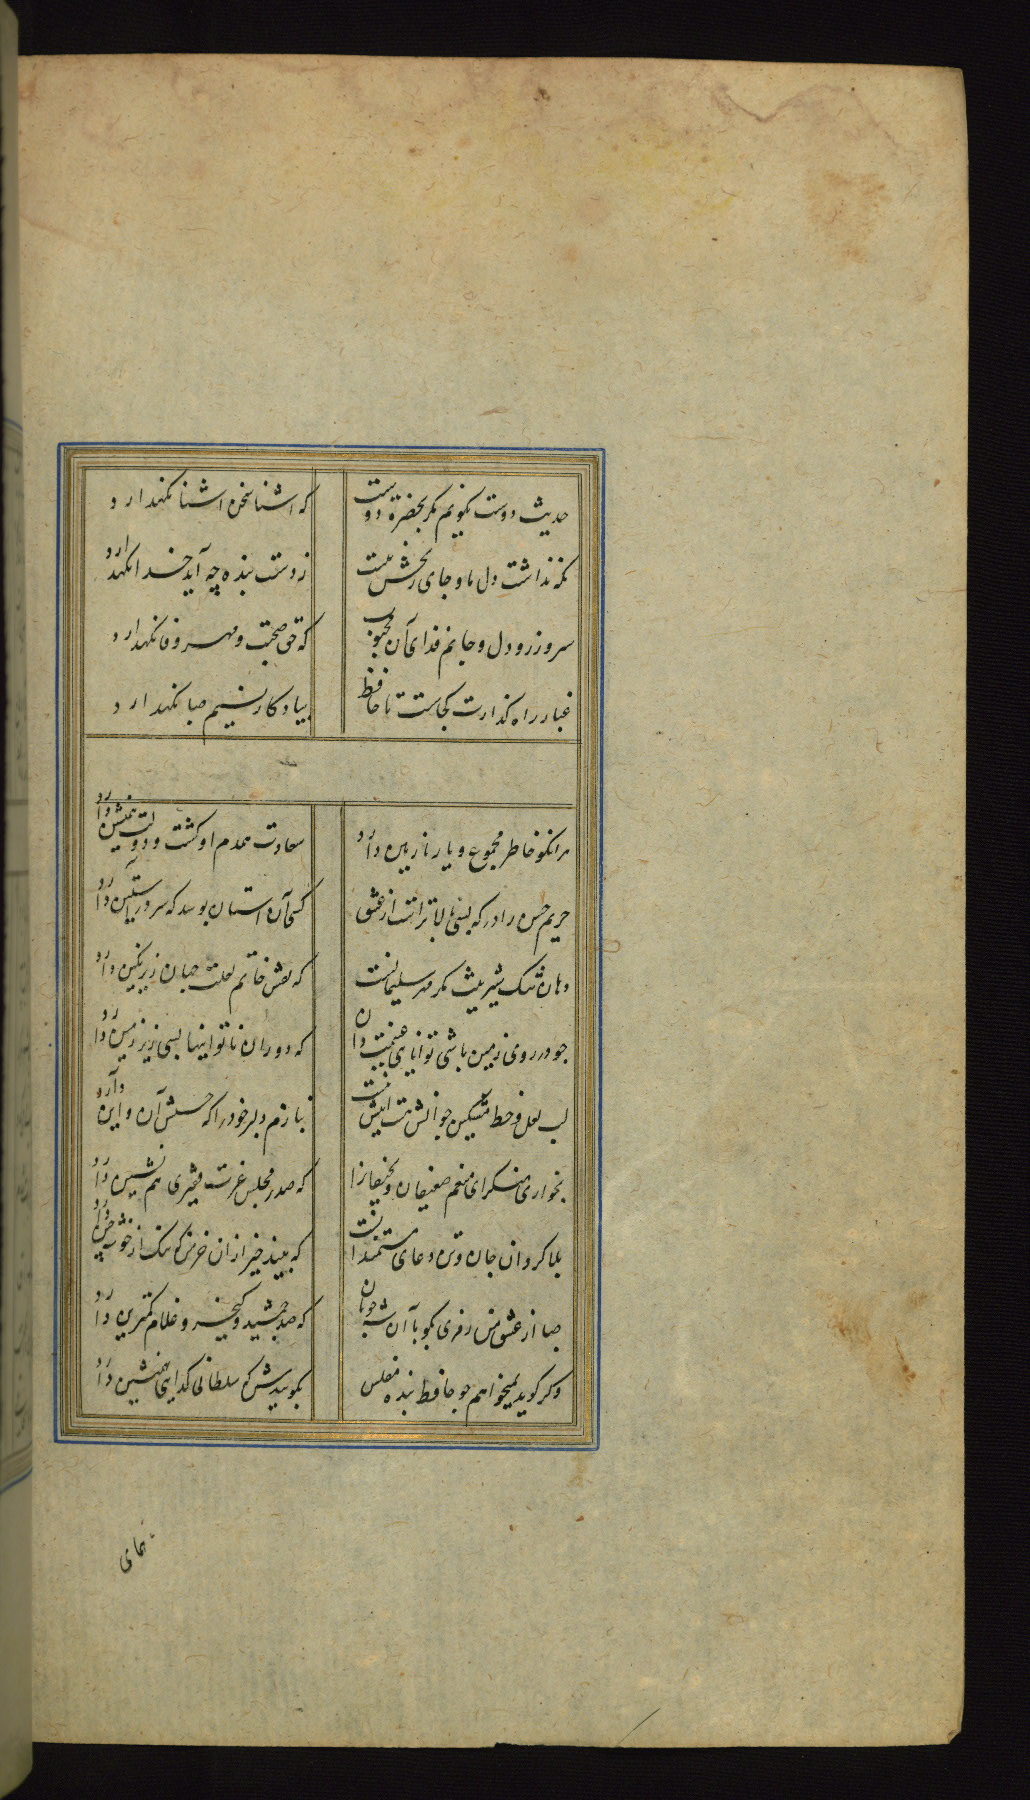 حدیث دوست نکویم مکر بحضرة دوست که اشنا سخن اشنا نکهدارد
نکه نداشت دل ما و جای رنجش نیست ز دست بنده چه آید خدا نکهدارد
سر و زر و دل و جانم فدای آن محبوب که حق صحبت و مهر و وفا نکهدارد
غبار راه کذارت کجاست تا حافظ بیادکار نسیم صبا نکهدارد
هرانکو خاطر مجموع و یار نازنین دارد سعادت همدم او کشت و دولت همنشین دارد
حریم حسن را درکه بسی بالاتر است از عشق کسی آن استان بوسد که سر در آستین دارد
دهان تنک شیرینش مکر مهر سلیمانست که نقش خاتم لعلت جهان زیر نکین دارد
چو در روی زمین باشی توانایی غنیمت دان که دوران ناتوانیها بسی زیر زمین دارد
لب لعل و خط مشکین چو انش هست اینش نیست بنازم دلبر خود را که حسنش آن و این دارد
بخواری منکر ای منعم ضعیفان و نحیفان را که صدر مجلس عزت فقیری هم نشین دارد
بلا کردان جان و تن دعای مستمندانست که بیند خیر از ان خرمن که ننک از خوشه چین دارد
صبا از عشق من رمزی بکو با آن شه خوبان که صد جمشید و کیخسرو غلام کمترین دارد
و کر کوید نمیخواهم چو حافظ بنده مفلس بکوییدش که سلطانی کدایی همنشین دارد
همای